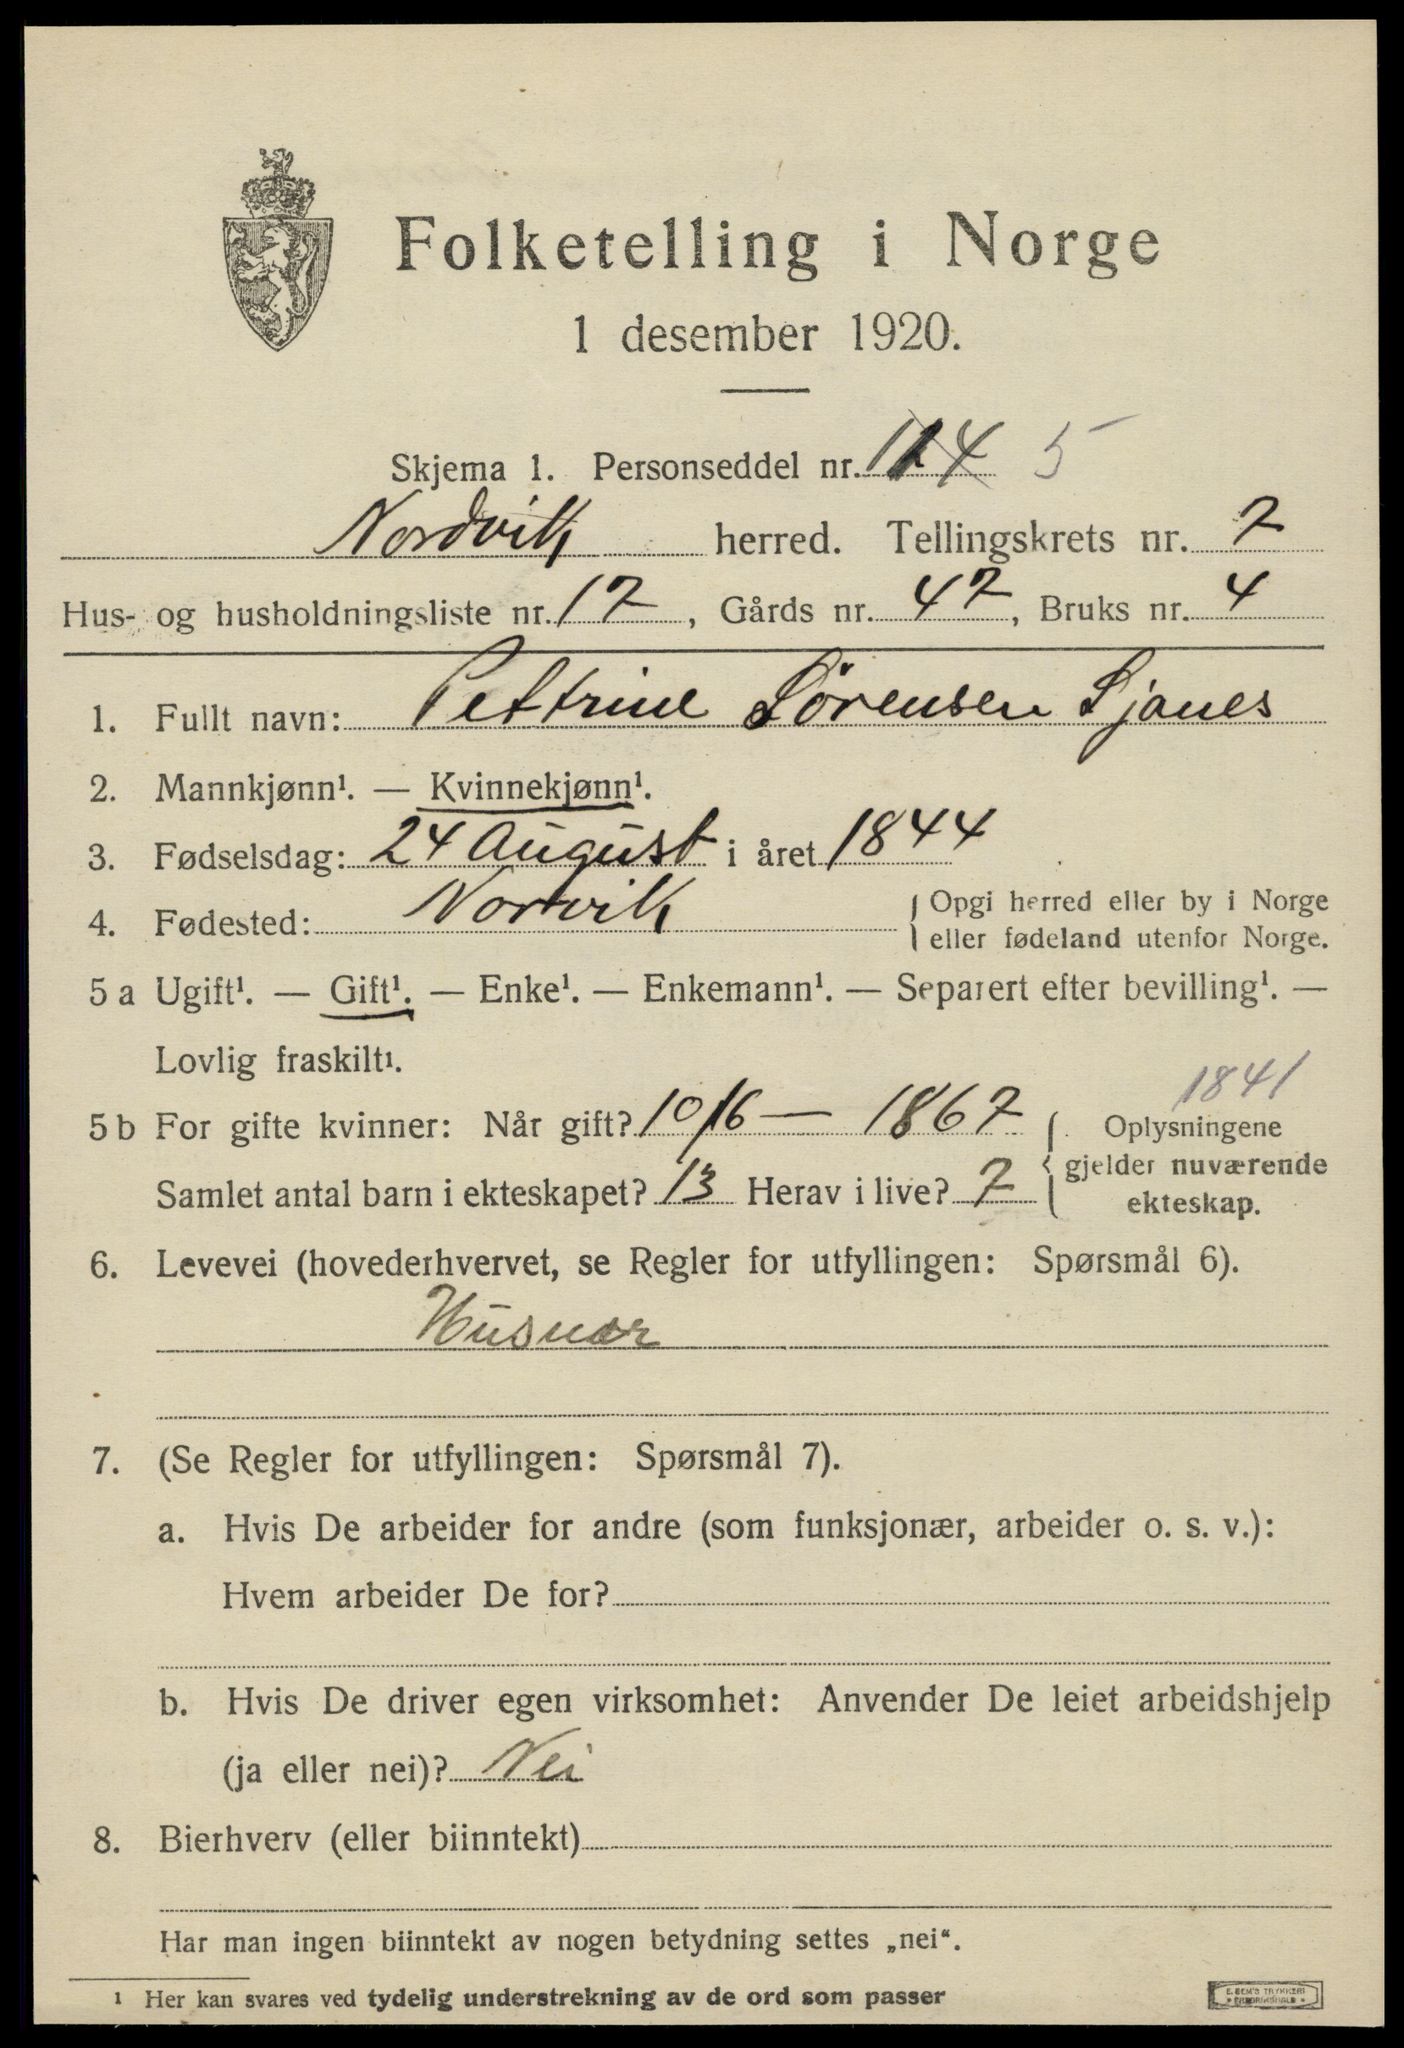 Folketelling i Norge
1 desember 1920.
Skjema 1. Personseddel nr. 114 5
Nordvik herred. Tellingskrets nr. 7
Hus- og husholdningsliste nr. 17, Gårds nr. 47, Bruks nr. 4
1. Fullt navn: Pettrine Sørensen Sjanes
2. Mannkjønn¹. — Kvinnekjønn¹.
3. Fødselsdag: 24 August i året 1844
4. Fødested: Norvik { Opgi herred eller by i Norge
eller fødeland utenfor Norge.
5 a Ugift¹. — Gift¹. — Enke¹. — Enkemann¹. — Separert efter bevilling¹. —
Lovlig fraskilt¹.
1841
5 b For gifte kvinner: Når gift? 10/6 — 1867 { Oplysningene
gjelder nuværende
Samlet antal barn i ekteskapet? 13 Herav i live? 7 ekteskap.
6. Levevei (hovederhvervet, se Regler for utfyllingen: Spørsmål 6).
Husmor
7. (Se Regler for utfyllingen: Spørsmål 7).
a. Hvis De arbeider for andre (som funksjonær, arbeider o. s. v.):
Hvem arbeider De for?
b. Hvis De driver egen virksomhet: Anvender De leiet arbeidshjelp
(ja eller nei)? Nei
8. Bierhverv (eller biinntekt)
Har man ingen biinntekt av nogen betydning settes „nei“.
¹ Her kan svares ved tydelig understrekning av de ord som passer
E. SEM'S TRYKKERI
FREDRIKSHALD